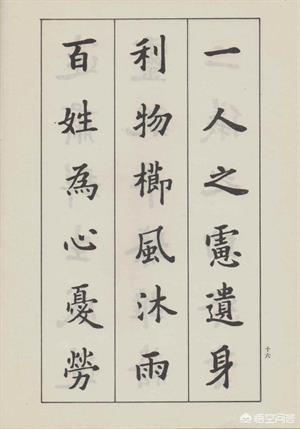 一人之慮遺身
利物櫛風沐雨
百姓為心憂勞
十六
悟空问答